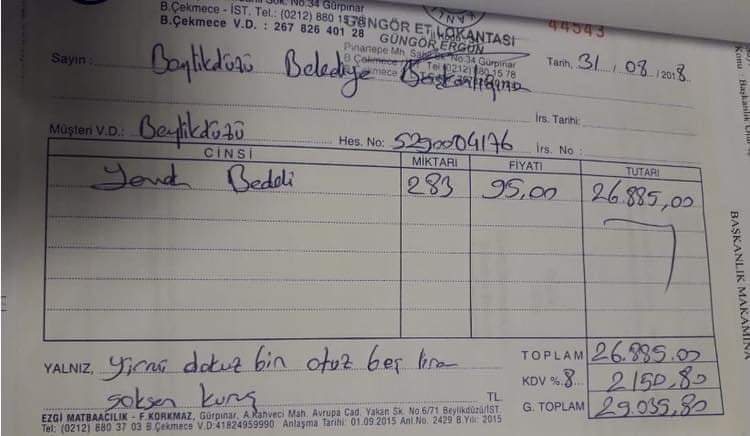 Sok. No:34 Gürpınar
B.Çekmece - İST. Tel.: (0212) 880 15 78
B.Çekmece V.D. : 267 826 401 28
GÜNGÖR ET LOKANTASI
GÜNGÖR ERGÜN
Pınartepe Mh. No:34 Gürpınar
B.Çekmece Tel:(0212) 880 15 78
44543
Sayın : Beylikdüzü Belediye Başkanlığı
Tarih, 31 / 08 / 2018
İrs. Tarihi:
Müşteri V.D.: Beylikdüzü Hes. No: 5290004176 İrs. No :
CİNSİ MİKTARI FİYATI TUTARI
Yemek Bedeli 283 95,00 26.885,00
YALNIZ, yirmi dokuz bin otuz beş lira
seksen kuruş TL
TOPLAM 26.885.00
KDV %.8... 2150,80
G. TOPLAM 29.035,80
EZGİ MATBAACILIK - F.KORKMAZ, Gürpınar, A.Kahveci Mah. Avrupa Cad. Yakan Sk. No:6/71 Beylikdüzü/İST.
Tel: (0212) 880 37 03 B.Çekmece V.D:41824959990 Anlaşma Tarihi: 01.09.2015 Anl.No. 2429 B.Yılı: 2015
Konu : Başkanlık
BAŞKANLIK MAKAMINA